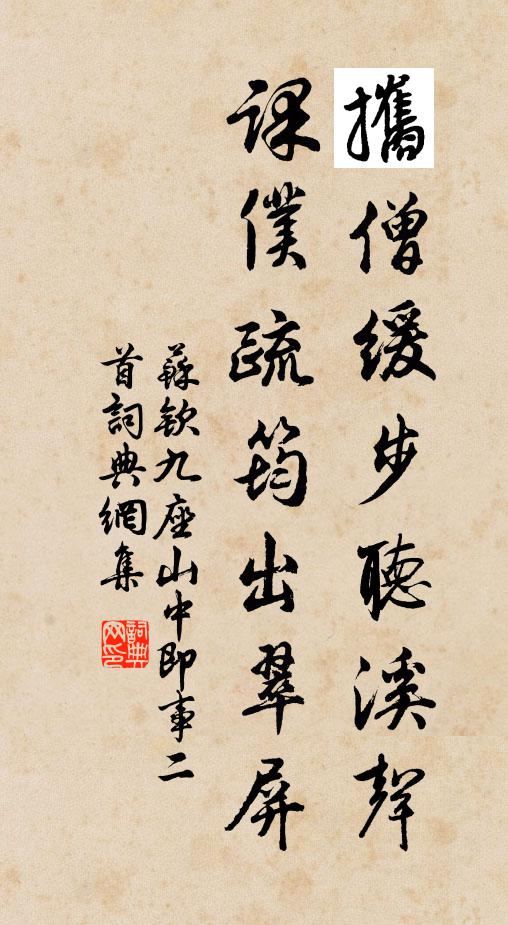 攜僧緩步聽溪聲
課僕疏筠出翠屏
蘇欽九座山中即事二
首詞典網集
詞典
網印